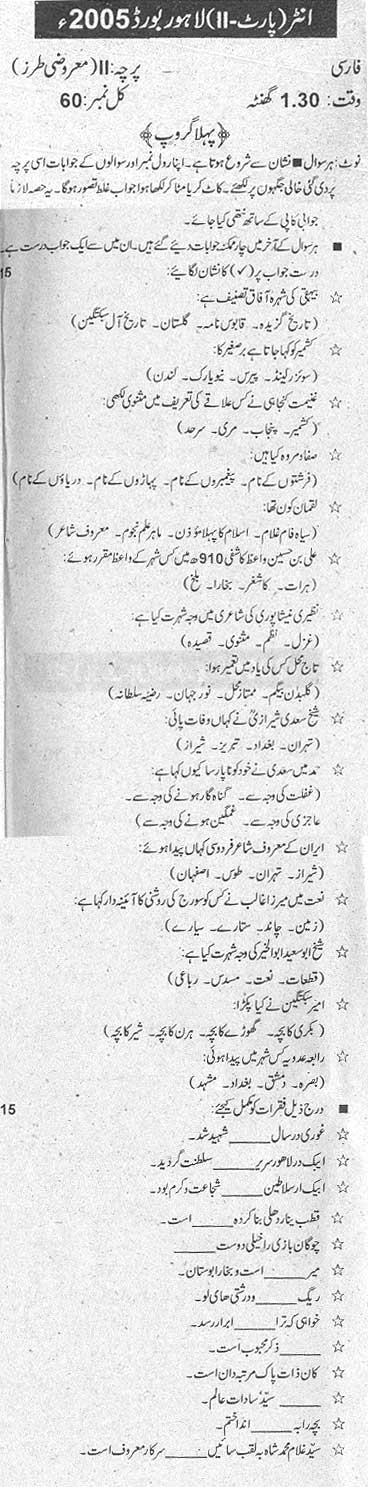 انٹر (پارٹ-II) لاہور بورڈ 2005ء
فارسی پرچہ: II (معروضی طرز)
وقت: 1.30 گھنٹہ کل نمبر: 60
﴿پہلا گروپ﴾
نوٹ: ہر سوال ■ نشان سے شروع ہوتا ہے۔ اپنا رول نمبر اور سوالوں کے جوابات اسی پرچہ
پر دی گئی خالی جگہوں پر لکھئے۔ کاٹ کر یا مٹا کر لکھا ہوا جواب غلط تصور ہو گا۔ یہ حصہ لازماً
جوابی کاپی کے ساتھ نتھی کیا جائے۔
■ ہر سوال کے آخر میں چار ممکنہ جوابات دیئے گئے ہیں۔ ان میں سے ایک جواب درست ہے۔
درست جواب پر (✓) کا نشان لگائیے: 15
☆ بیہقی کی شہرہ آفاق تصنیف ہے:
(تاریخ گزیدہ۔ قابوس نامہ۔ گلستان۔ تاریخ آل سبکتگین)
☆ کشمیر کو کہا جاتا ہے برصغیر کا:
(سوئزرلینڈ۔ پیرس۔ نیویارک۔ لندن)
☆ غنیمت کنجاہی نے کس علاقے کی تعریف میں مثنوی لکھی:
(کشمیر۔ پنجاب۔ مری۔ سرحد)
☆ صفا و مروہ کیا ہیں:
(فرشتوں کے نام۔ پیغمبروں کے نام۔ پہاڑوں کے نام۔ دریاؤں کے نام)
☆ لقمان کون تھا:
(سیاہ فام غلام۔ اسلام کا پہلا مؤذن۔ ماہر علم نجوم۔ معروف شاعر)
☆ علی بن حسین واعظ کاشفی 910ھ میں کس شہر کے واعظ مقرر ہوئے:
(ہرات۔ کاشغر۔ بخارا۔ بلخ)
☆ نظیری نیشاپوری کی شاعری میں وجہ شہرت کیا ہے:
(غزل۔ نظم۔ مثنوی۔ قصیدہ)
☆ تاج محل کس کی یاد میں تعمیر ہوا:
(گلبدن بیگم۔ ممتاز محل۔ نور جہان۔ رضیہ سلطانہ)
☆ شیخ سعدی شیرازیؒ نے کہاں وفات پائی:
(تہران۔ بغداد۔ تبریز۔ شیراز)
☆ حمد میں سعدی نے خود کو ناپارسا کیوں کہا ہے:
(غفلت کی وجہ سے۔ گناہ گار ہونے کی وجہ سے۔
عاجزی کی وجہ سے۔ غمگین ہونے کی وجہ سے)
☆ ایران کے معروف شاعر فردوسی کہاں پیدا ہوئے:
(شیراز۔ تہران۔ طوس۔ اصفہان)
☆ نعت میں میرزا غالب نے کس کو سورج کی روشنی کا آئینہ دار کہا ہے:
(زمین۔ چاند۔ ستارے۔ سیارے)
☆ شیخ ابو سعید ابوالخیر کی وجہ شہرت کیا ہے:
(قطعات۔ نعت۔ مسدس۔ رباعی)
☆ امیر سبکتگین نے کیا پکڑا:
(بکری کا بچہ۔ گھوڑے کا بچہ۔ ہرن کا بچہ۔ شیر کا بچہ)
☆ رابعہ عدویہ کس شہر میں پیدا ہوئی:
(بصرہ۔ دمشق۔ بغداد۔ مشہد)
■ درج ذیل فقرات کو مکمل کیجئے: 15
☆ غوری در سال _____ شہید شد۔
☆ ایبک در لاہور سریر _____ سلطنت گردید۔
☆ ایبک از سلاطین _____ شجاعت و کرم بود۔
☆ قطب مینار دھلی بنا کردہ _____ است۔
☆ چوگان بازی را خیلی دوست _____
☆ میر _____ است و بخارا بوستان۔
☆ ریگ _____ و درشتی ھای او۔
☆ خواہی کہ ترا _____ ابرار رسد۔
☆ _____ ذکر محبوب است۔
☆ کان ذات پاک مرتبہ دان است۔
☆ _____ سیّد سادات عالم۔
☆ بچہ را بہ _____ انداختم۔
☆ سیّد غلام محمد شاہ بہ لقب سائیں _____ سرکار معروف است۔